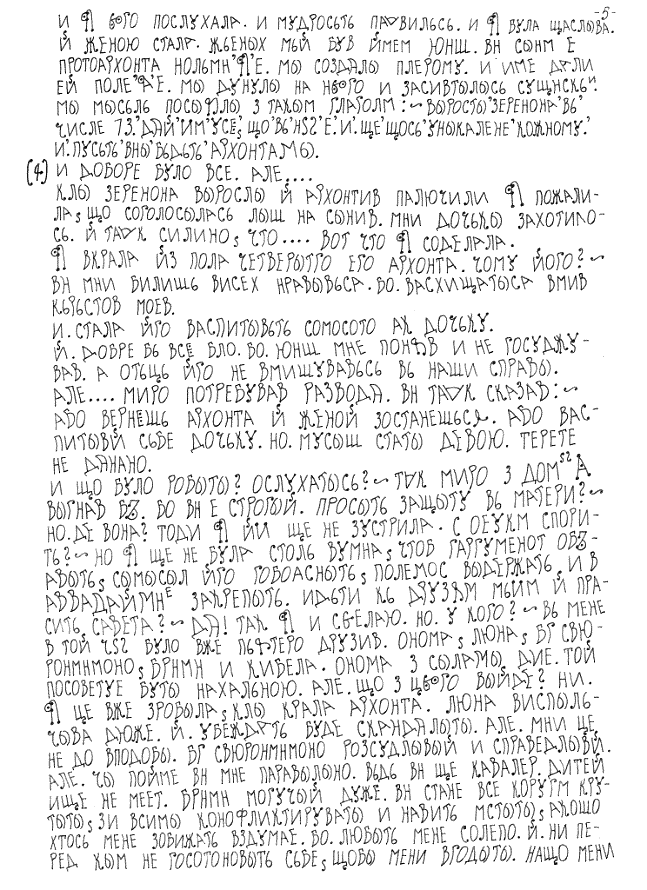 -5-
И Я ЄГО ПОСЛУХАЛА. И МУДРОСЬТЬ ПАВИЛЬСЬ. И Я БУЛА ЩАСЛЫВА.
Й ЖЕНОЮ СТАЛА. ЖЬЕНЫХ МЬЙ БУВ ЙМЕМ ЮНШ. ВН СЫНМ Е
ПРОТОАРХОНТА НОЛЬМН'Я'Е. МЫ СОЗДАЛЫ ПЛЕРОМУ. И ИМЕ ДАЛИ
ЕЙ ПОЛЕ'Я'Е. МЫ ДУНУЛЫ НА НЬОГО И ЗАСИВТЫЛЫСЬ СУЩНСКЬИ.
МЫ МЫСЕЛЬ ПОСЫЛЫ З ТАКЫМ ГЛАГОЛМ:~ ВЫРОСТЫ'ЗЕРЕНОНА'ВЬ'
ЧИСЛЕ 73.'ДАЙ'ИМ'УСЕ, ЩО'ВЬ'НЅ2'Е'.И'.ЩЕ'ЩОСЬ'УНЫКАЛЕНЕ'КОЖНОМУ.'
И'.ПУСЬТЬ'ВНЫ'БЬДЬТЬ'АРХОНТАМЫ.
(4.) И ДОБОРЕ БУЛО ВСЕ. АЛЕ....
КЛЫ ЗЕРЕНОНА ВЫРОСЛЫ Й АРХОНТИВ ПАЛЮЧИЛИ Я ПОЖАЛИ-
ЛА, ЩО СОГОЛОСЫЛАСЬ ЛЫШ НА СЫНИВ. МНИ ДОЧЬКЫ ЗАХОТИЛО-
СЬ. Й ТАК СИЛИНО, ЧТО.... ВОТ ЧТО Я СОДЕЛАЛА.
Я ВКРАЛА ЙЗ ПОЛА ЧЕТВЕРЫТГО ЕГО АРХОНТА. ЧОМУ ЙОГО?~
ВН МНИ БИЛИШЬ ВИСЕХ НРАВЫВЬСА. БО. ВАСХИЩАТЫСА ВМИВ
КЬРЬСТОВ МОЕВ.
И. СТАЛА ЙГО ВАСПИТЫВЬТЬ СОМОСОТО АК ДОЧЬКУ.
Й. ДОБРЕ БЬ ВСЕ БЛО. БО. ЮНШ МНЕ ПОНЯВ И НЕ ГОСУДЖУ-
ВАВ. А ОТЬЦЬ ЙГО НЕ ВМИЩУВАВЬСЬ ВЬ НАШИ СПРАВЫ.
АЛЕ.... МИРО ПОТРЕБУВАВ РАЗВОДА. ВН ТАК СКАЗАВ:~
АБО ВЕРНЕШЬ АРХОНТА Й ЖЕНОЙ ЗОСТАНЕШЬСЯ. АБО ВАС-
ПИТЫВЙ СЬБЕ ДОЧЬКУ. НО. МУСЫШ СТАТЫ ДЕВОЮ. ТЕРЕТЕ
НЕ ДАНАНО.
И ЩО БУЛО РОБЫТЫ? ОСЛУХАТЫСЬ?~ ТАК МИРО З ДОМЅ2А
ВЫГНАВ БЗ. БО ВН Е СТРОГЫЙ. ПРОСЫТЬ ЗАЩЫТУ ВЬ МАТЕРИ?~
НО. ДЕ ВОНА? ТОДИ Я ЙИ ЩЕ НЕ ЗУСТРИЛА. С ОЕУКМ СПОРИ-
ТЬ?~ НО Я ЩЕ НЕ БУЛА СТОЛЬ ВУМНА, ЧТОБ ГАРГУМЕНОТ ОБЗ-
АВЫТЬ, СЫМЫСЫЛ ЙГО ГОБОАСНЫТЬ, ПОЛЕМОС ВЫДЕРЖАТЬ, И В
АВВАДАЙМНЕ ЗАКРЕПЫТЬ. ИДЬТИ КЬ ДРУЗЯМ МЬИМ Й ПРА-
СИТЬ САВЕТА?~ ДА! ТАК Я И СЬЕЛАЮ. НО. У КОГО?~ ВЬ МЕНЕ
В ТОЙ ЧЅ2 БУЛО ВЖЕ ПЬЯТЕРО ДРУЗИВ. ОНОМА, ЛЮНА, БГ СВЮ-
РОНМНМОНО, БРНМН И КИВЕЛА. ОНОМА З СЫЛАМЫ ДИЕ. ТОЙ
ПОСОВЕТУЕ БУТЫ НАХАЛЬНОЮ. АЛЕ. ЩО З ЦЬОГО ВЫЙДЕ? НИ.
Я ЦЕ ВЖЕ ЗРОБЫЛА, КЛЫ КРАЛА АРХОНТА. ЛЮНА ВИСПЫЛЬ-
ЧЫВА ДЮЖЕ. Й. УБЕЖДАТЬ БУДЕ СКАНДАЛЫТЫ. АЛЕ. МНИ ЦЕ
НЕ ДО ВПОДОБЫ. БГ СВЮРОНМНМОНО РОЗСУДЛЫВЫЙ И СПРАВЕДЛЫВЙ.
АЛЕ. ЧЫ ПОЙМЕ ВН МНЕ ПАРАВЫЛЫНО. ВЬДЬ ВН ЩЕ КАВАЛЕР. ДИТЕЙ
ИЩЕ НЕ МЕЕТ. БРНМН МОГУЧЫЙ ДУЖЕ. ВН СТАНЕ ВСЕ КОРУГМ КРУ-
ТЫТЫ, ЗИ ВСИМЫ КОНОФЛИКТИРУВАТЫ И НАВИТЬ МСТЫТЫ, АКОЩО
ХТОСЬ МЕНЕ ЗОБИЖАТЬ ВЗДУМАЕ. БО. ЛЮБЫТЬ МЕНЕ СОЛЕПО. Й. НИ ПЕ-
РЕД КЫМ НЕ ГОСОТОНОВЫТЬ СЬБЕ, ЩОБЫ МЕНИ ВГОДЫТЫ. НАЩО МЕНИ